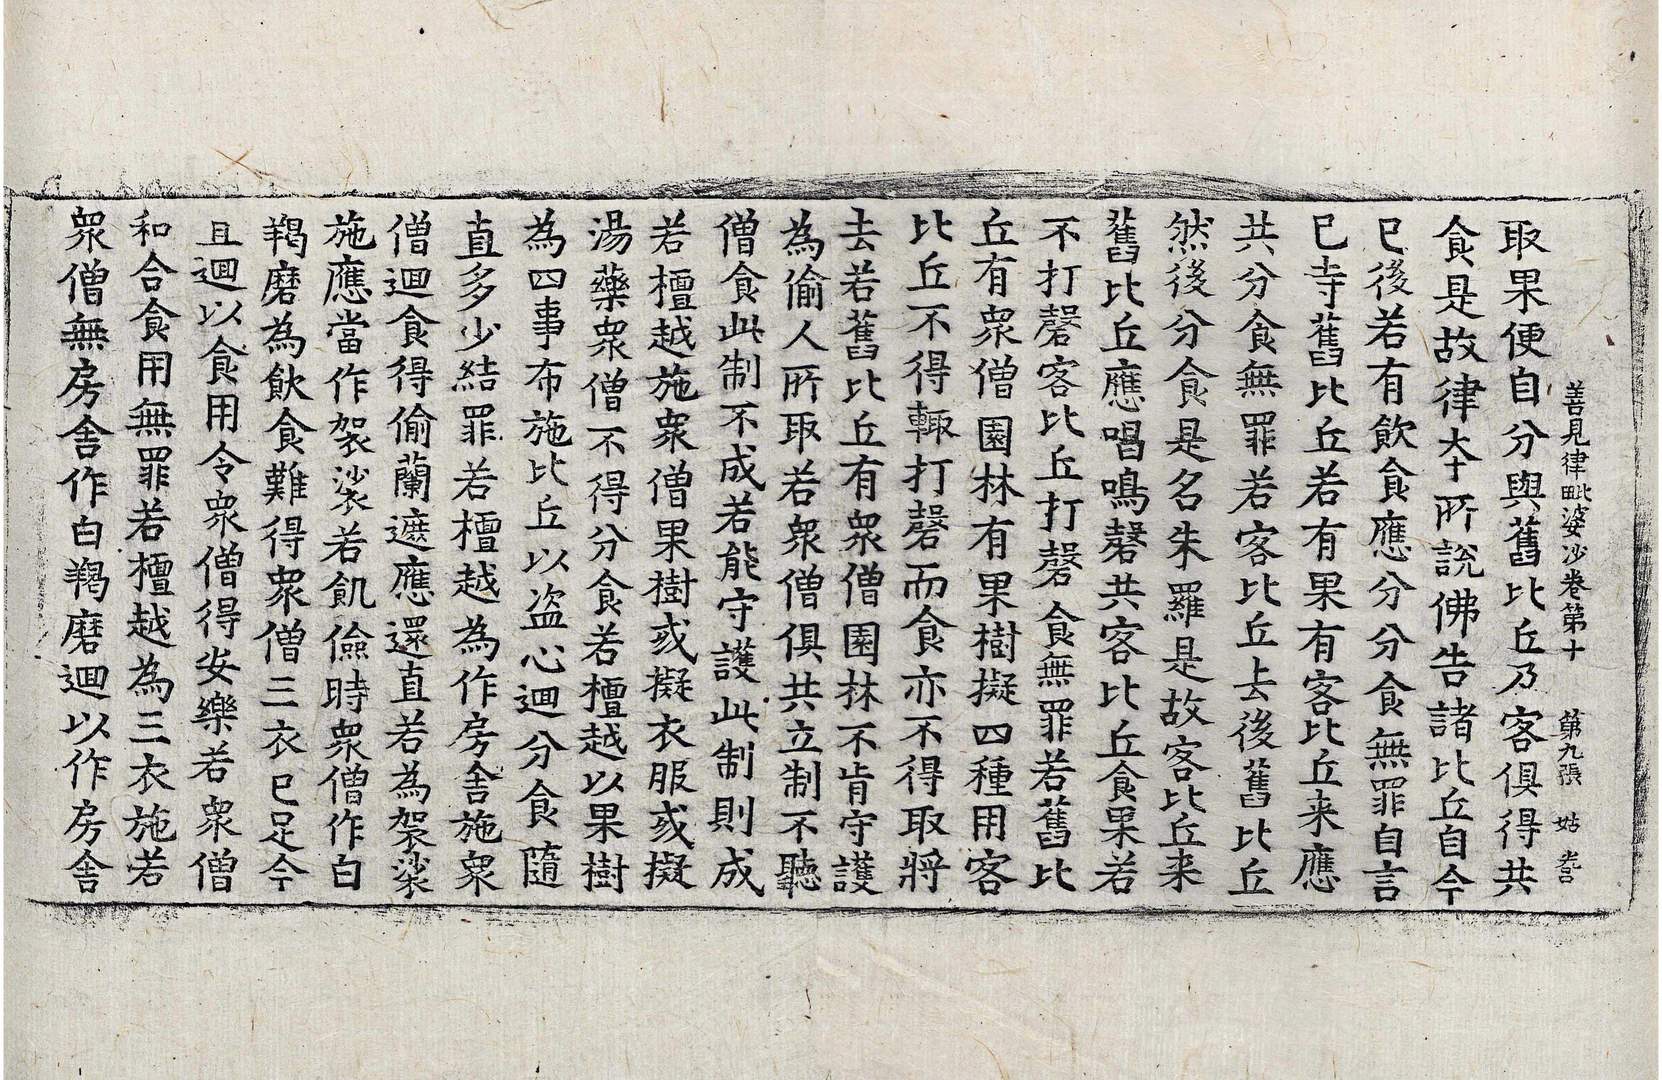 善見律毗婆沙卷第十 第九張 姑
取果便自分與舊比丘乃客俱得共
食是故律本所說佛告諸比丘自今
已後若有飲食應分分食無罪自言
已寺舊比丘若有果有客比丘来應
共分食無罪若客比丘去後舊比丘
然後分食是名朱羅是故客比丘来
舊比丘應唱鳴磬共客比丘食果若
不打磬客比丘打磬食無罪若舊比
丘有衆僧園林有果樹擬四種用客
比丘不得輙打磬而食亦不得取將
去若舊比丘有衆僧園林不肯守護
為偷人所取若衆僧俱共立制不聽
僧食此制不成若能守護此制則成
若檀越施衆僧果樹或擬衣服或擬
湯藥衆僧不得分食若檀越以果樹
為四事布施比丘以盗心迴分食隨
直多少結罪若檀越為作房舍施衆
僧迴食得偷蘭遮應還直若為袈裟
施應當作袈裟若飢儉時衆僧作白
羯磨為飲食難得衆僧三衣已足今
且迴以食用令衆僧得安樂若衆僧
和合食用無罪若檀越為三衣施若
衆僧無房舍作白羯磨迴以作房舍